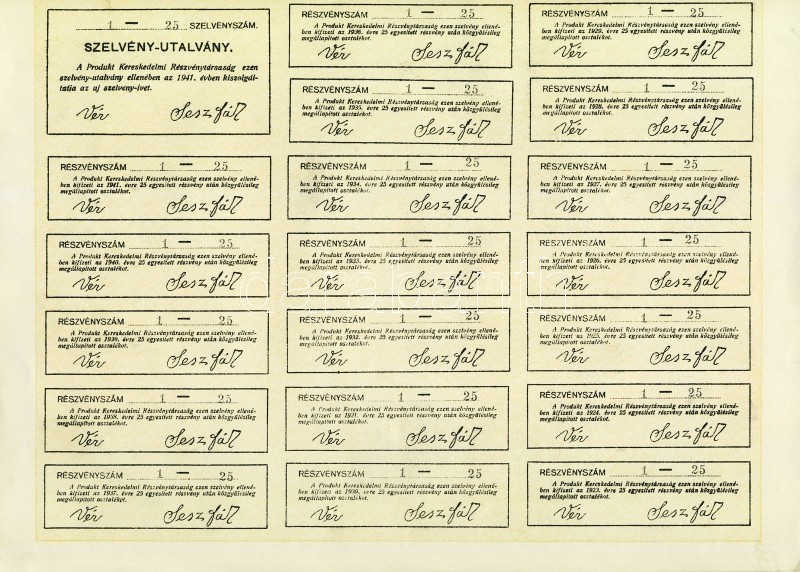 1 — 25 SZELVÉNYSZÁM.
SZELVÉNY-UTALVÁNY.
A Produkt Kereskedelmi Részvénytársaság ezen
szelvény-utalvány ellenében az 1941. évben kiszolgál-
tatja az uj szelvény-ivet.
RÉSZVÉNYSZÁM 1 — 25
A Produkt Kereskedelmi Részvénytársaság ezen szelvény ellené-
ben kifizeti az 1941. évre 25 egyesitett részvény után közgyűlésileg
megállapitott osztalékot.
RÉSZVÉNYSZÁM 1 — 25
A Produkt Kereskedelmi Részvénytársaság ezen szelvény ellené-
ben kifizeti az 1940. évre 25 egyesitett részvény után közgyűlésileg
megállapitott osztalékot.
RÉSZVÉNYSZÁM 1 — 25
A Produkt Kereskedelmi Részvénytársaság ezen szelvény ellené-
ben kifizeti az 1939. évre 25 egyesitett részvény után közgyűlésileg
megállapitott osztalékot.
RÉSZVÉNYSZÁM 1 — 25
A Produkt Kereskedelmi Részvénytársaság ezen szelvény ellené-
ben kifizeti az 1938. évre 25 egyesitett részvény után közgyűlésileg
megállapitott osztalékot.
RÉSZVÉNYSZÁM 1 — 25
A Produkt Kereskedelmi Részvénytársaság ezen szelvény ellené-
ben kifizeti az 1937. évre 25 egyesitett részvény után közgyűlésileg
megállapitott osztalékot.
RÉSZVÉNYSZÁM 1 — 25
A Produkt Kereskedelmi Részvénytársaság ezen szelvény ellené-
ben kifizeti az 1936. évre 25 egyesitett részvény után közgyűlésileg
megállapitott osztalékot.
RÉSZVÉNYSZÁM 1 — 25
A Produkt Kereskedelmi Részvénytársaság ezen szelvény ellené-
ben kifizeti az 1935. évre 25 egyesitett részvény után közgyűlésileg
megállapitott osztalékot.
RÉSZVÉNYSZÁM 1 — 25
A Produkt Kereskedelmi Részvénytársaság ezen szelvény ellené-
ben kifizeti az 1934. évre 25 egyesitett részvény után közgyűlésileg
megállapitott osztalékot.
RÉSZVÉNYSZÁM 1 — 25
A Produkt Kereskedelmi Részvénytársaság ezen szelvény ellené-
ben kifizeti az 1933. évre 25 egyesitett részvény után közgyűlésileg
megállapitott osztalékot.
RÉSZVÉNYSZÁM 1 — 25
A Produkt Kereskedelmi Részvénytársaság ezen szelvény ellené-
ben kifizeti az 1932. évre 25 egyesitett részvény után közgyűlésileg
megállapitott osztalékot.
RÉSZVÉNYSZÁM 1 — 25
A Produkt Kereskedelmi Részvénytársaság ezen szelvény ellené-
ben kifizeti az 1931. évre 25 egyesitett részvény után közgyűlésileg
megállapitott osztalékot.
RÉSZVÉNYSZÁM 1 — 25
A Produkt Kereskedelmi Részvénytársaság ezen szelvény ellené-
ben kifizeti az 1930. évre 25 egyesitett részvény után közgyűlésileg
megállapitott osztalékot.
RÉSZVÉNYSZÁM 1 — 25
A Produkt Kereskedelmi Részvénytársaság ezen szelvény ellené-
ben kifizeti az 1929. évre 25 egyesitett részvény után közgyűlésileg
megállapitott osztalékot.
RÉSZVÉNYSZÁM 1 — 25
A Produkt Kereskedelmi Részvénytársaság ezen szelvény ellené-
ben kifizeti az 1928. évre 25 egyesitett részvény után közgyűlésileg
megállapitott osztalékot.
RÉSZVÉNYSZÁM 1 — 25
A Produkt Kereskedelmi Részvénytársaság ezen szelvény ellené-
ben kifizeti az 1927. évre 25 egyesitett részvény után közgyűlésileg
megállapitott osztalékot.
RÉSZVÉNYSZÁM 1 — 25
A Produkt Kereskedelmi Részvénytársaság ezen szelvény ellené-
ben kifizeti az 1926. évre 25 egyesitett részvény után közgyűlésileg
megállapitott osztalékot.
RÉSZVÉNYSZÁM 1 — 25
A Produkt Kereskedelmi Részvénytársaság ezen szelvény ellené-
ben kifizeti az 1925. évre 25 egyesitett részvény után közgyűlésileg
megállapitott osztalékot.
RÉSZVÉNYSZÁM 1 — 25
A Produkt Kereskedelmi Részvénytársaság ezen szelvény ellené-
ben kifizeti az 1924. évre 25 egyesitett részvény után közgyűlésileg
megállapitott osztalékot.
RÉSZVÉNYSZÁM 1 — 25
A Produkt Kereskedelmi Részvénytársaság ezen szelvény ellené-
ben kifizeti az 1923. évre 25 egyesitett részvény után közgyűlésileg
megállapitott osztalékot.